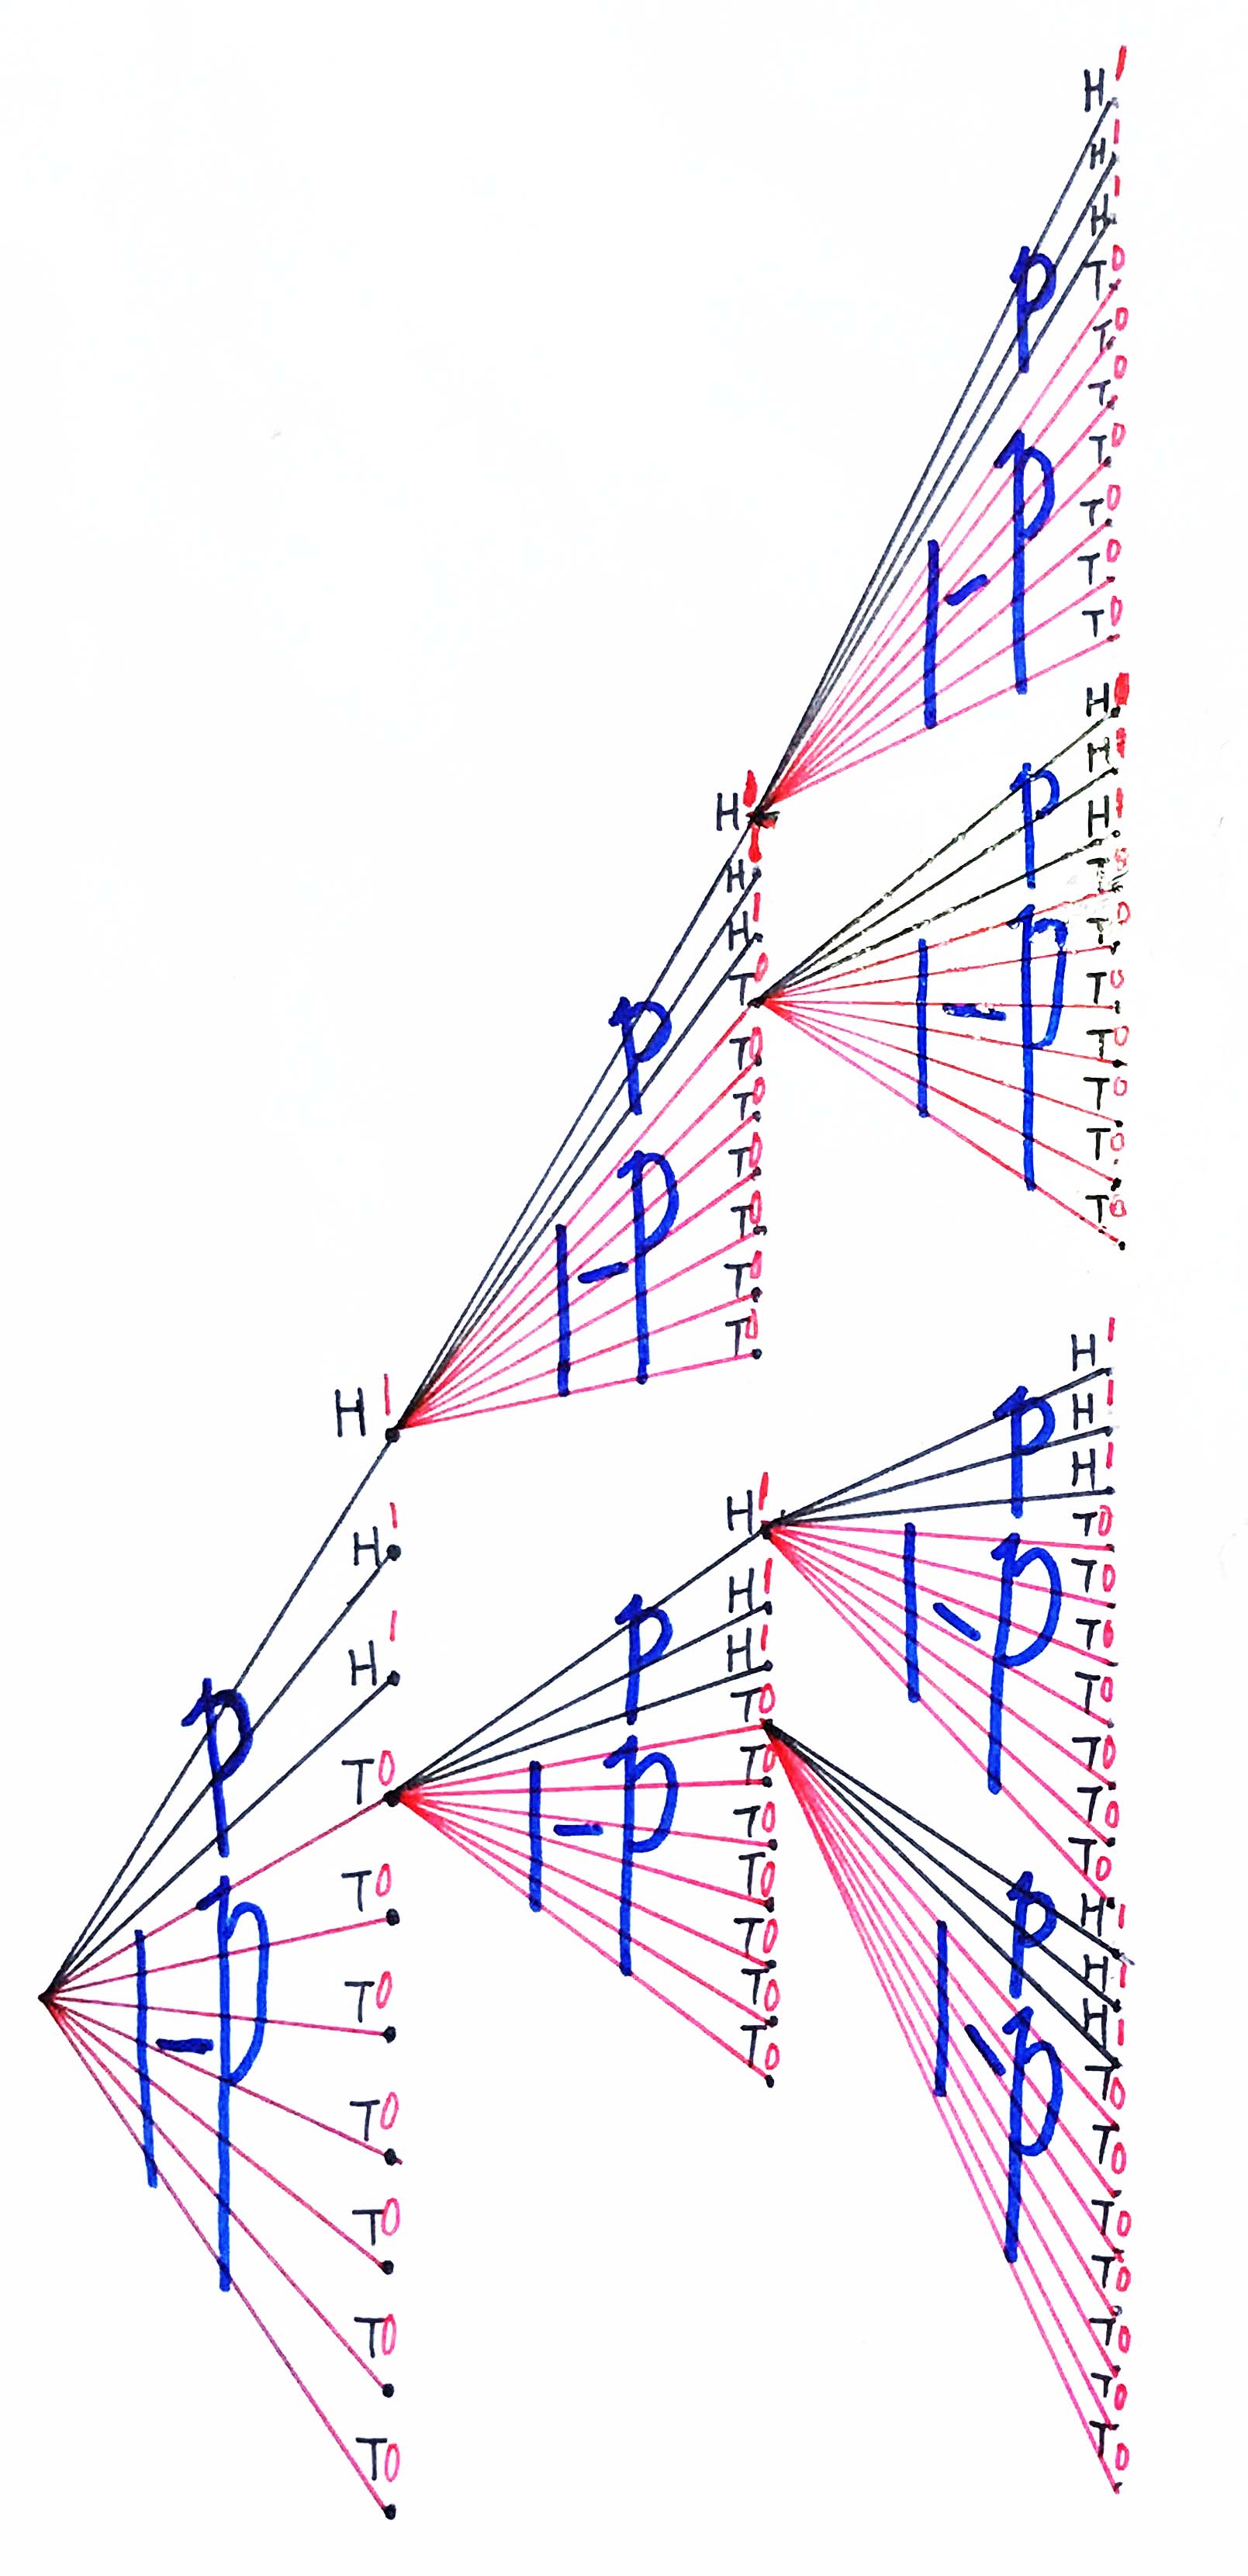 p
1-p
H 1
H 1
H 1
T 0
T 0
T 0
T 0
T 0
T 0
T 0
p
1-p
H 1
H 1
H 1
T 0
T 0
T 0
T 0
T 0
T 0
T 0
p
1-p
H 1
H 1
H 1
T 0
T 0
T 0
T 0
T 0
T 0
T 0
p
1-p
H 1
H 1
H 1
T 0
T 0
T 0
T 0
T 0
T 0
T 0
p
1-p
H 1
H 1
H 1
T 0
T 0
T 0
T 0
T 0
T 0
T 0
p
1-p
H 1
H 1
H 1
T 0
T 0
T 0
T 0
T 0
T 0
T 0
p
1-p
H 1
H 1
H 1
T 0
T 0
T 0
T 0
T 0
T 0
T 0